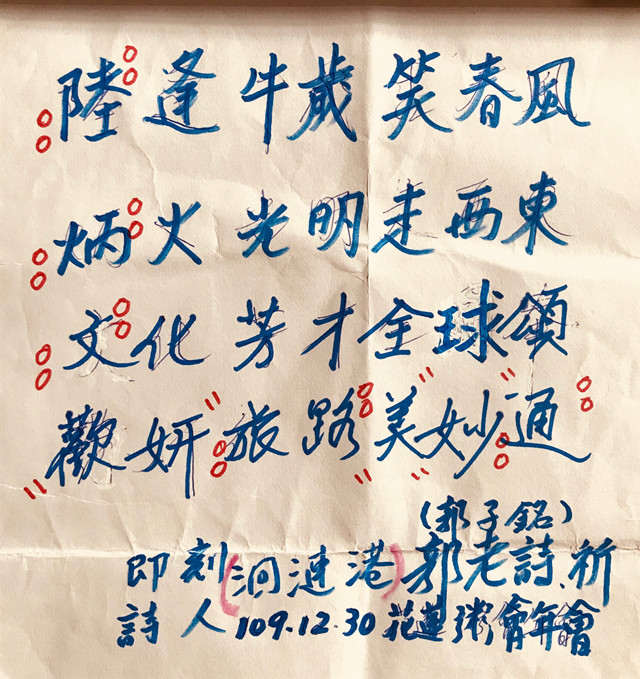 陸逢牛歲笑春風
炳火光明走西東
文化芳才全球頌
歡妍旅路美妙通
(郭子銘)
即刻(洄漣港)郭老詩.祈
詩人109.12.30花蓮粥會年會